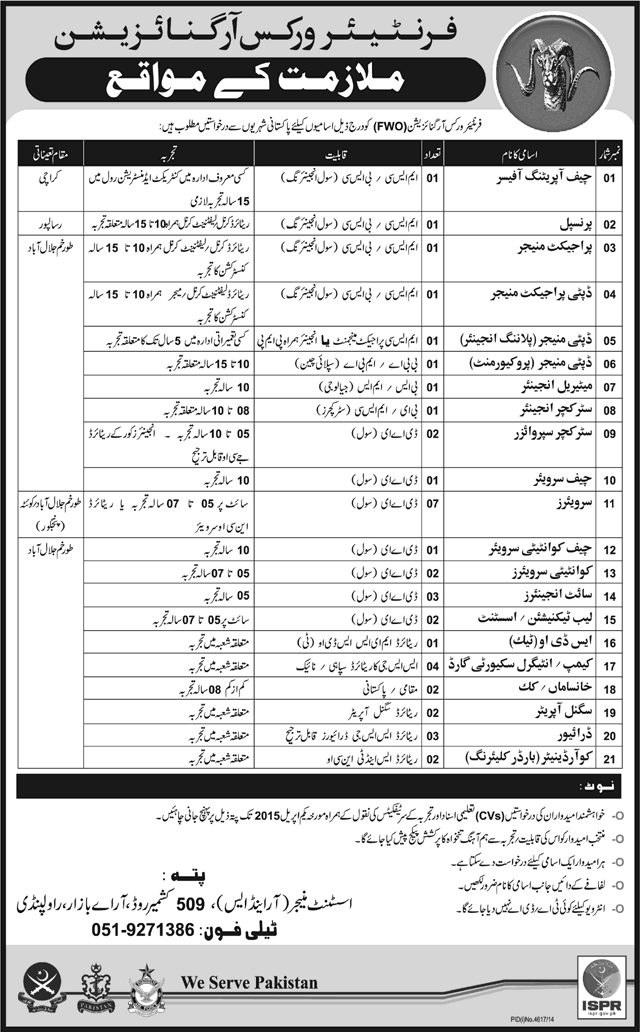 فرنٹیئر ورکس آرگنائزیشن
ملازمت کے مواقع
فرنٹیئر ورکس آرگنائزیشن (FWO) کو درج ذیل اسامیوں کیلئے پاکستانی شہریوں سے درخواستیں مطلوب ہیں:
نمبر شمار اسامی کا نام تعداد قابلیت تجربہ مقام تعیناتی
01 چیف آپریٹنگ آفیسر 01 ایم ایس سی / بی ایس سی (سول انجینئرنگ) کسی معروف ادارہ میں کنٹریکٹ ایڈمنسٹریشن رول میں کراچی
15 سالہ تجربہ لازمی
02 پرنسپل 01 ایم ایس سی / بی ایس سی (سول انجینئرنگ) ریٹائرڈ کرنل / لیفٹیننٹ کرنل ہمراہ 10 تا 15 سالہ متعلقہ تجربہ رسالپور
03 پراجیکٹ منیجر 01 ایم ایس سی / بی ایس سی (سول انجینئرنگ) ریٹائرڈ کرنل / لیفٹیننٹ کرنل ہمراہ 10 تا 15 سالہ طورخم جلال آباد
کنسٹرکشن کا تجربہ
04 ڈپٹی پراجیکٹ منیجر 01 ایم ایس سی / بی ایس سی (سول انجینئرنگ) ریٹائرڈ لیفٹیننٹ کرنل / میجر ہمراہ 10 تا 15 سالہ
کنسٹرکشن کا تجربہ
05 ڈپٹی منیجر (پلاننگ انجینئر) 01 ایم ایس سی پراجیکٹ مینجمنٹ یا انجینئر ہمراہ پی ایم پی کسی تعمیراتی ادارہ میں 5 سال تک کا متعلقہ تجربہ
06 ڈپٹی منیجر (پروکیورمنٹ) 01 بی بی اے / ایم بی اے (سپلائی چین) 10 تا 15 سالہ تجربہ
07 میٹیریل انجینئر 01 بی ایس / ایم ایس (جیالوجی) 10 سالہ تجربہ
08 سٹرکچر انجینئر 01 بی ای / ایم ایس سی (سٹرکچرز) 08 تا 10 سالہ متعلقہ تجربہ
09 سٹرکچر سپروائزر 02 ڈی اے ای (سول) 05 تا 10 سالہ تجربہ ۔ انجینئرز کور کے ریٹائرڈ
جے سی او قابل ترجیح
10 چیف سرویئر 01 ڈی اے ای (سول) 10 سالہ تجربہ
11 سرویئرز 07 ڈی اے ای (سول) سائٹ پر 05 تا 07 سالہ تجربہ یا ریٹائرڈ طورخم جلال آباد / کوئٹہ
این سی او سرویئر (پنجگور)
12 چیف کوانٹیٹی سرویئر 01 ڈی اے ای (سول) 10 سالہ تجربہ طورخم جلال آباد
13 کوانٹیٹی سرویئرز 02 ڈی اے ای (سول) 05 تا 07 سالہ تجربہ
14 سائٹ انجینئرز 03 ڈی اے ای (سول) 05 سالہ تجربہ
15 لیب ٹیکنیشن / اسسٹنٹ 02 ڈی اے ای (سول) سائٹ پر 05 تا 07 سالہ تجربہ
16 ایس ڈی او (ٹیک) 01 ریٹائرڈ ایم ای ایس ایس ڈی او (ٹی) متعلقہ شعبہ میں تجربہ
17 کیمپ / انٹیگرل سکیورٹی گارڈ 04 ایس ایس جی کا ریٹائرڈ سپاہی / نائیک متعلقہ شعبہ میں تجربہ
18 خانساماں / کک 02 مقامی / پاکستانی کم از کم 08 سالہ تجربہ
19 سگنل آپریٹر 02 ریٹائرڈ سگنل آپریٹر متعلقہ شعبہ میں تجربہ
20 ڈرائیور 03 ریٹائرڈ ایس ایس جی ڈرائیورز قابل ترجیح متعلقہ شعبہ میں تجربہ
21 کوآرڈینیٹر (بارڈر کلیئرنگ) 02 ریٹائرڈ ایس اینڈ ٹی این سی او متعلقہ شعبہ میں تجربہ
نوٹ :
خواہشمند امیدواران کی درخواستیں (CVs) تعلیمی اسناد اور تجربہ کے سرٹیفکیٹس کی نقول کے ہمراہ مورخہ یکم اپریل 2015 تک پتہ ذیل پر پہنچ جانی چاہئیں۔
منتخب امیدوار کو اس کی قابلیت / تجربہ سے ہم آہنگ تنخواہ کا پرکشش پیکج پیش کیا جائے گا۔
ہر امیدوار ایک اسامی کیلئے درخواست دے سکتا ہے۔
لفافے کے دائیں جانب اسامی کا نام ضرور لکھیں۔
انٹرویو کیلئے کوئی ٹی اے / ڈی اے نہیں دیا جائے گا۔
پتہ :
اسسٹنٹ منیجر (آر اینڈ ایس)، 509 کشمیر روڈ، آر اے بازار، راولپنڈی
ٹیلی فون : 051-9271386
PAKISTAN
We Serve Pakistan
ISPR
ispr.gov.pk
PID(I)No.4617/14